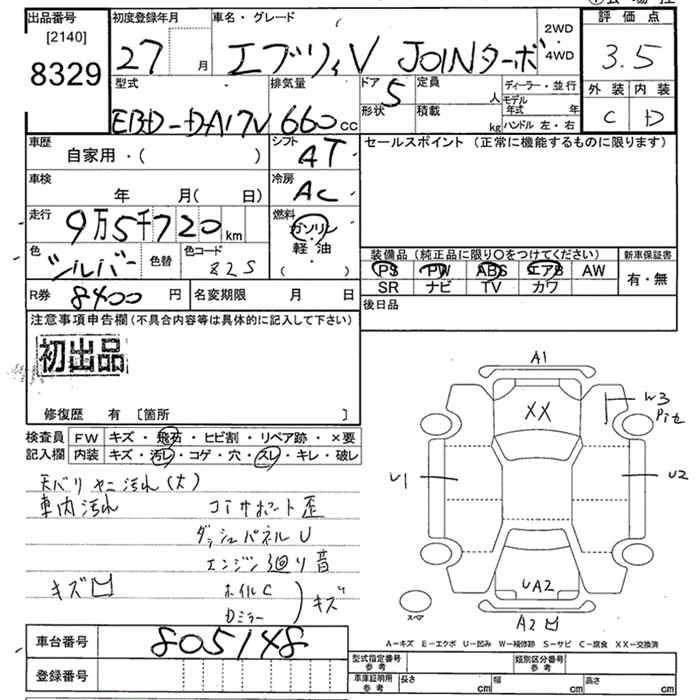 出品番号
[2140]
8329
初度登録年月
27
月
車名・グレード
エブリィV JOINターボ
2WD
・
4WD
評価点
3.5
外装 内装
C D
型式
EBD-DA17V
排気量
660cc
ドア
5
形状
定員
人
積載
kg
ディーラー・並行
モデル年式 年
ハンドル 左・右
車歴
自家用・( )
シフト
AT
セールスポイント (正常に機能するものに限ります)
車検
年 月( 日)
冷房
AC
走行
9万5千720km
燃料
ガソリン
・
軽・油
( ・ )
色
シルバー
色替
色コード
82S
装備品 (純正品に限り○をつけてください)
新車保証書
PS PW ABS エアB AW
SR ナビ TV カワ
有・無
R券
8400円
名変期限 月 日
後日品
注意事項申告欄(不具合内容等は具体的に記入して下さい)
初出品
修復歴 有 [箇所 ]
検査員 FW キズ・飛石・ヒビ割・リペア跡・×要
記入欄 内装 キズ・汚レ・コゲ・穴・スレ・キレ・破レ
天バリ ヤニ汚れ(大)
車内汚れ コアサポート歪
ダッシュパネルU
エンジン廻り音
キズ凹 ホイルC
Dミラー
キズ
A1
XX
W3
Pitを
U1
U2
UA2
A2凹
スペア
A-キズ E-エクボ U-凹み W-補修跡 S-サビ C-腐食 XX-交換済
車台番号
805148
登録番号
型式指定番号 参考
類別区分番号 参考
車庫証明用 参考
長さ cm 幅 cm 高さ cm